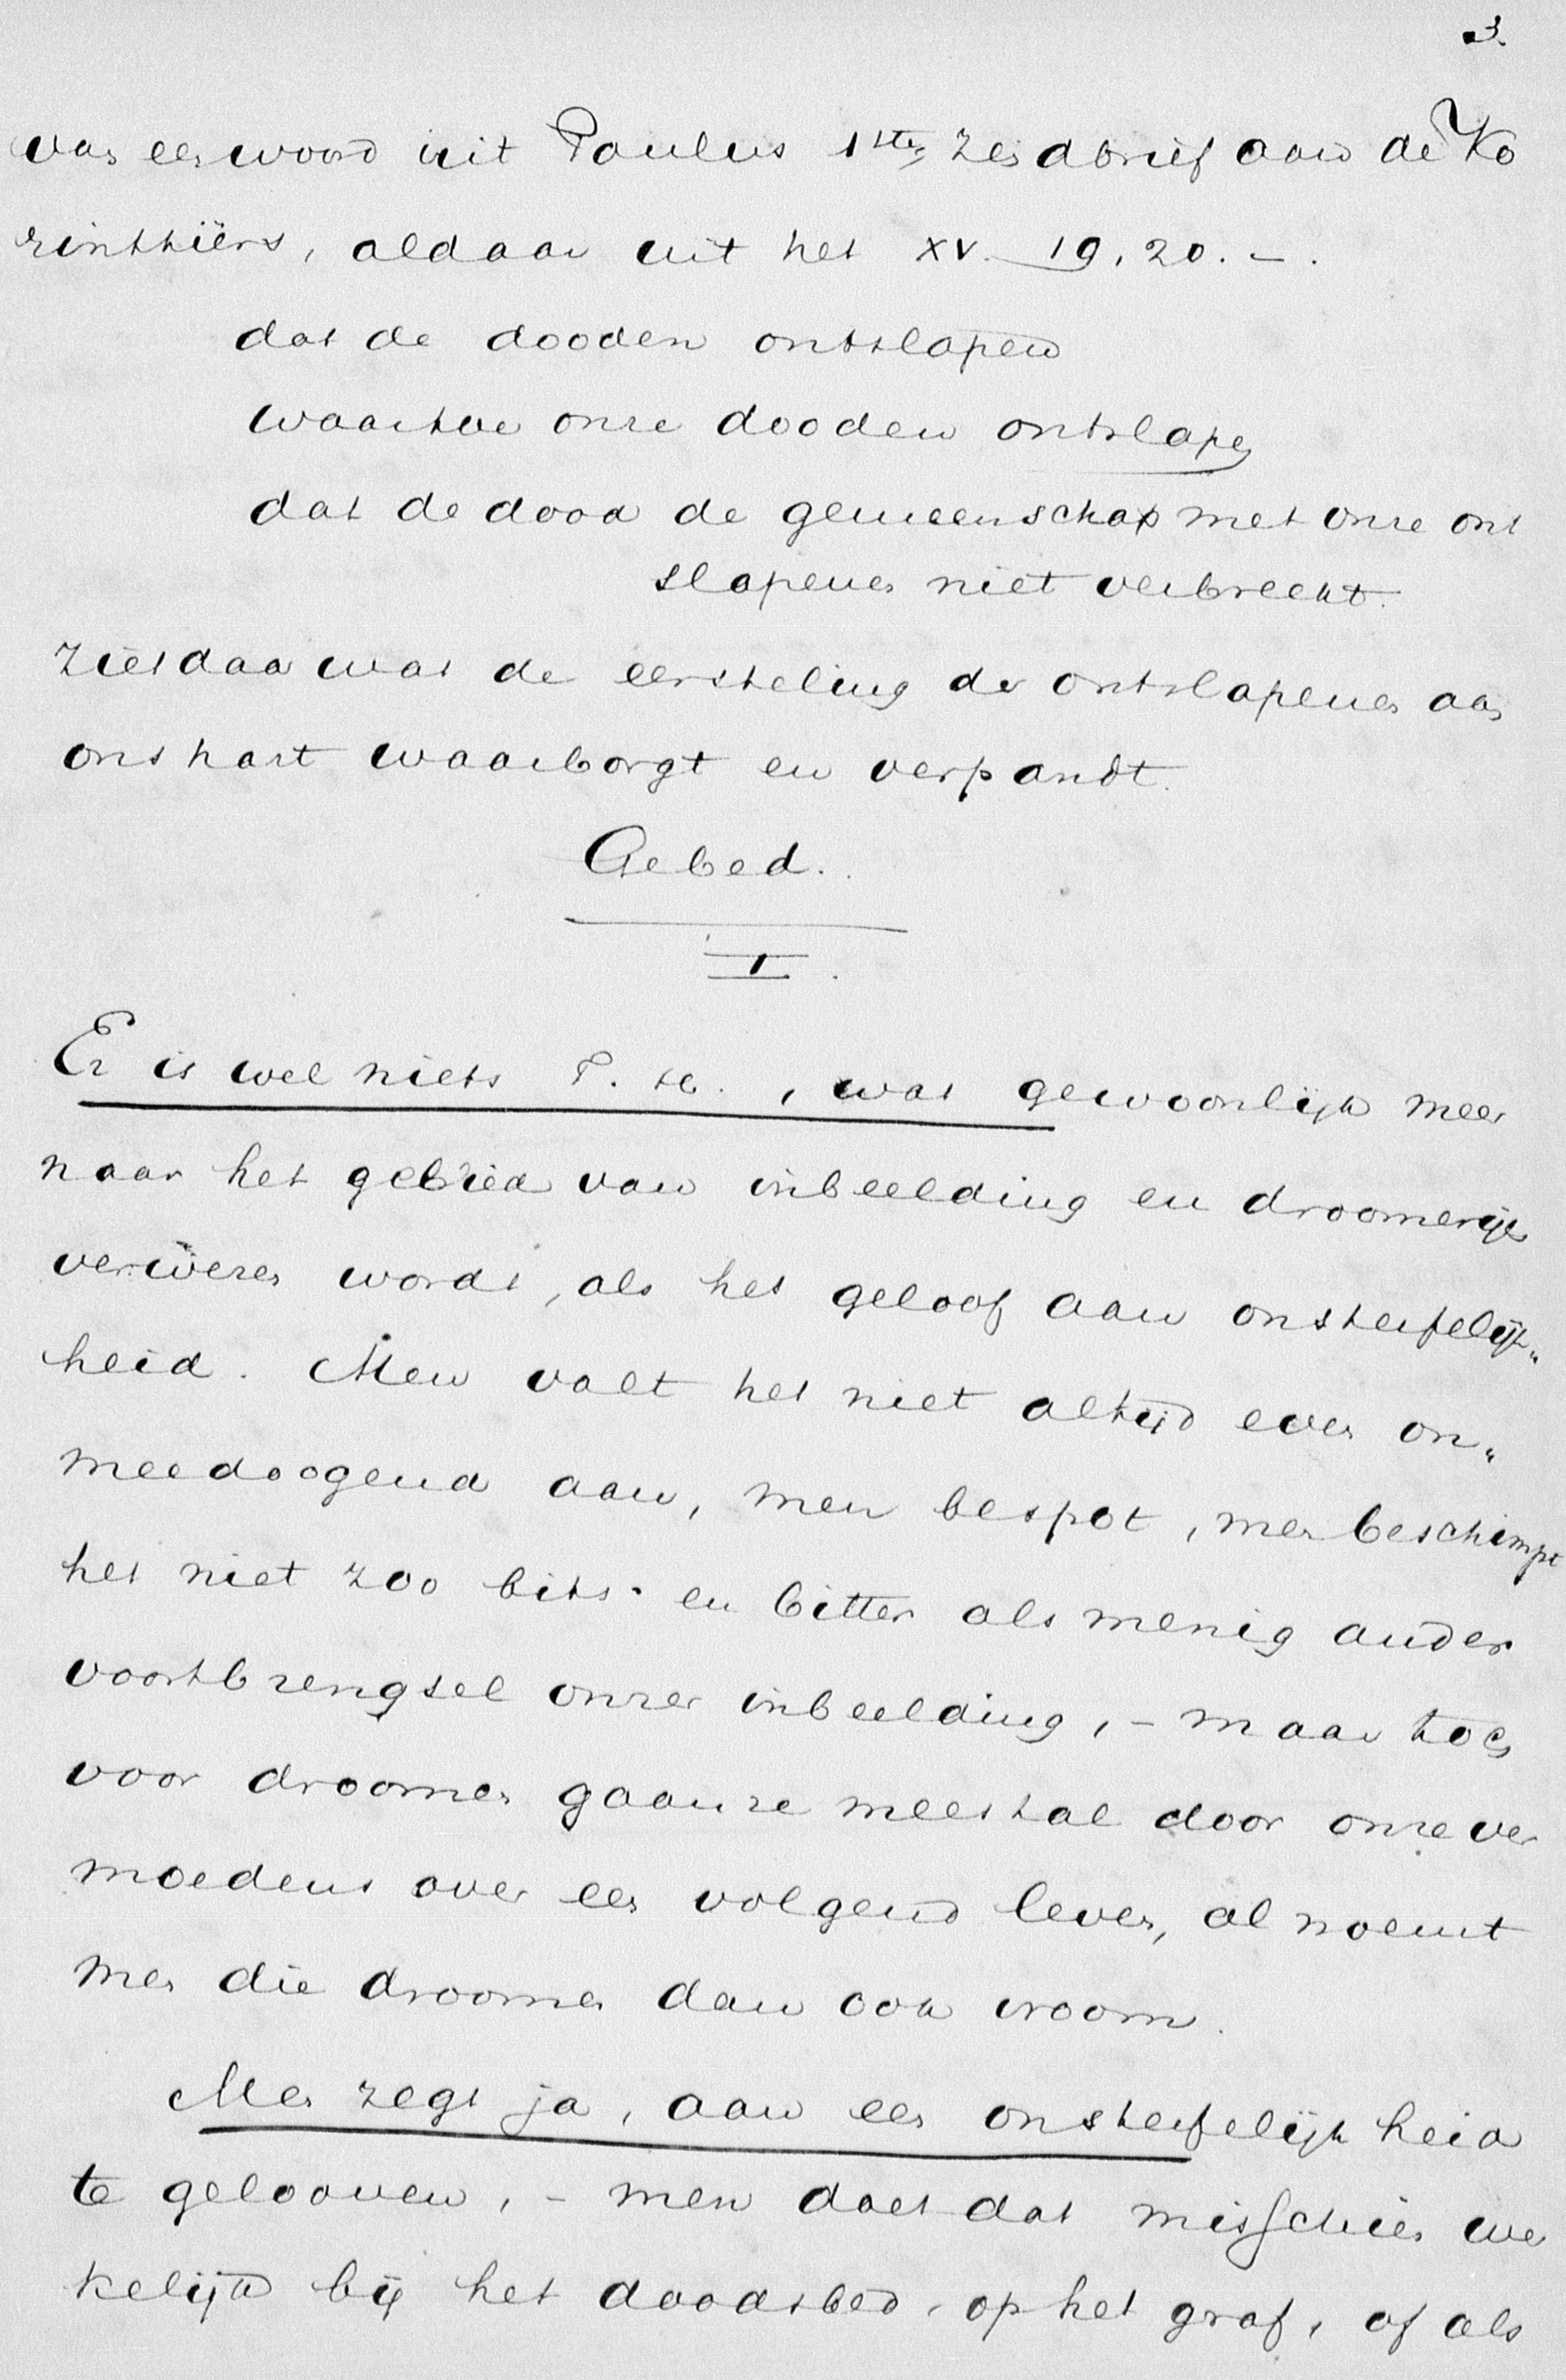 3.
van een woord uit Paulus 1sten Zendbrief aan de Ko
rinthiërs, aldaar uit het XV. 19, 20. -.
dat de dooden ontslapen
waartoe onze dooden ontslapen
dat de dood de gemeenschap met onze ont
slapenen niet verbreekt.
Ziet daar wat de eersteling der ontslapenen aan
ons hart waarborgt en verpandt.
Gebed.
I.
Er is wel niets T. H., wat gewoonlijk meer
naar het gebied van inbeelding en droomerijen
verwezen wordt, als het geloof aan onsterfelijk„
heid. Men valt het niet altijd even on„
meedoogend aan, men bespot, men beschimpt
het niet zoo bits en bitter als menig ander
voortbrengsel onzer inbeelding, - maar toch
voor droomen gaan ze meestal door onze ver
moedens over een volgend leven, al noemt
men die droomen dan ook vroom.
Men zegt ja, aan een onsterfelijkheid
te gelooven, - men doet dat misschien wer
kelijk bij het doodsbed, op het graf, of als